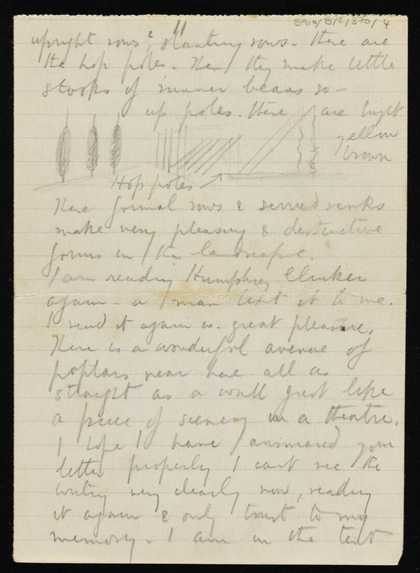 upright rows & slanting rows. These are
the hop poles. Then they make little
stooks of runner beans so -
up poles. These are bright
yellow
brown
Hop poles
These formal rows & serried ranks
make very pleasing & distinctive
forms in the landscape.
I am reading Humphrey Clinker
again - a man lent it to me.
I read it again w. great pleasure.
There is a wonderful avenue of
poplars near here all as
straight as a wall just like
a piece of scenery in a theatre.
I hope I have answered your
letter properly I cant see the
writing very clearly now, reading
it again & only trust to my
memory. I am in the tent